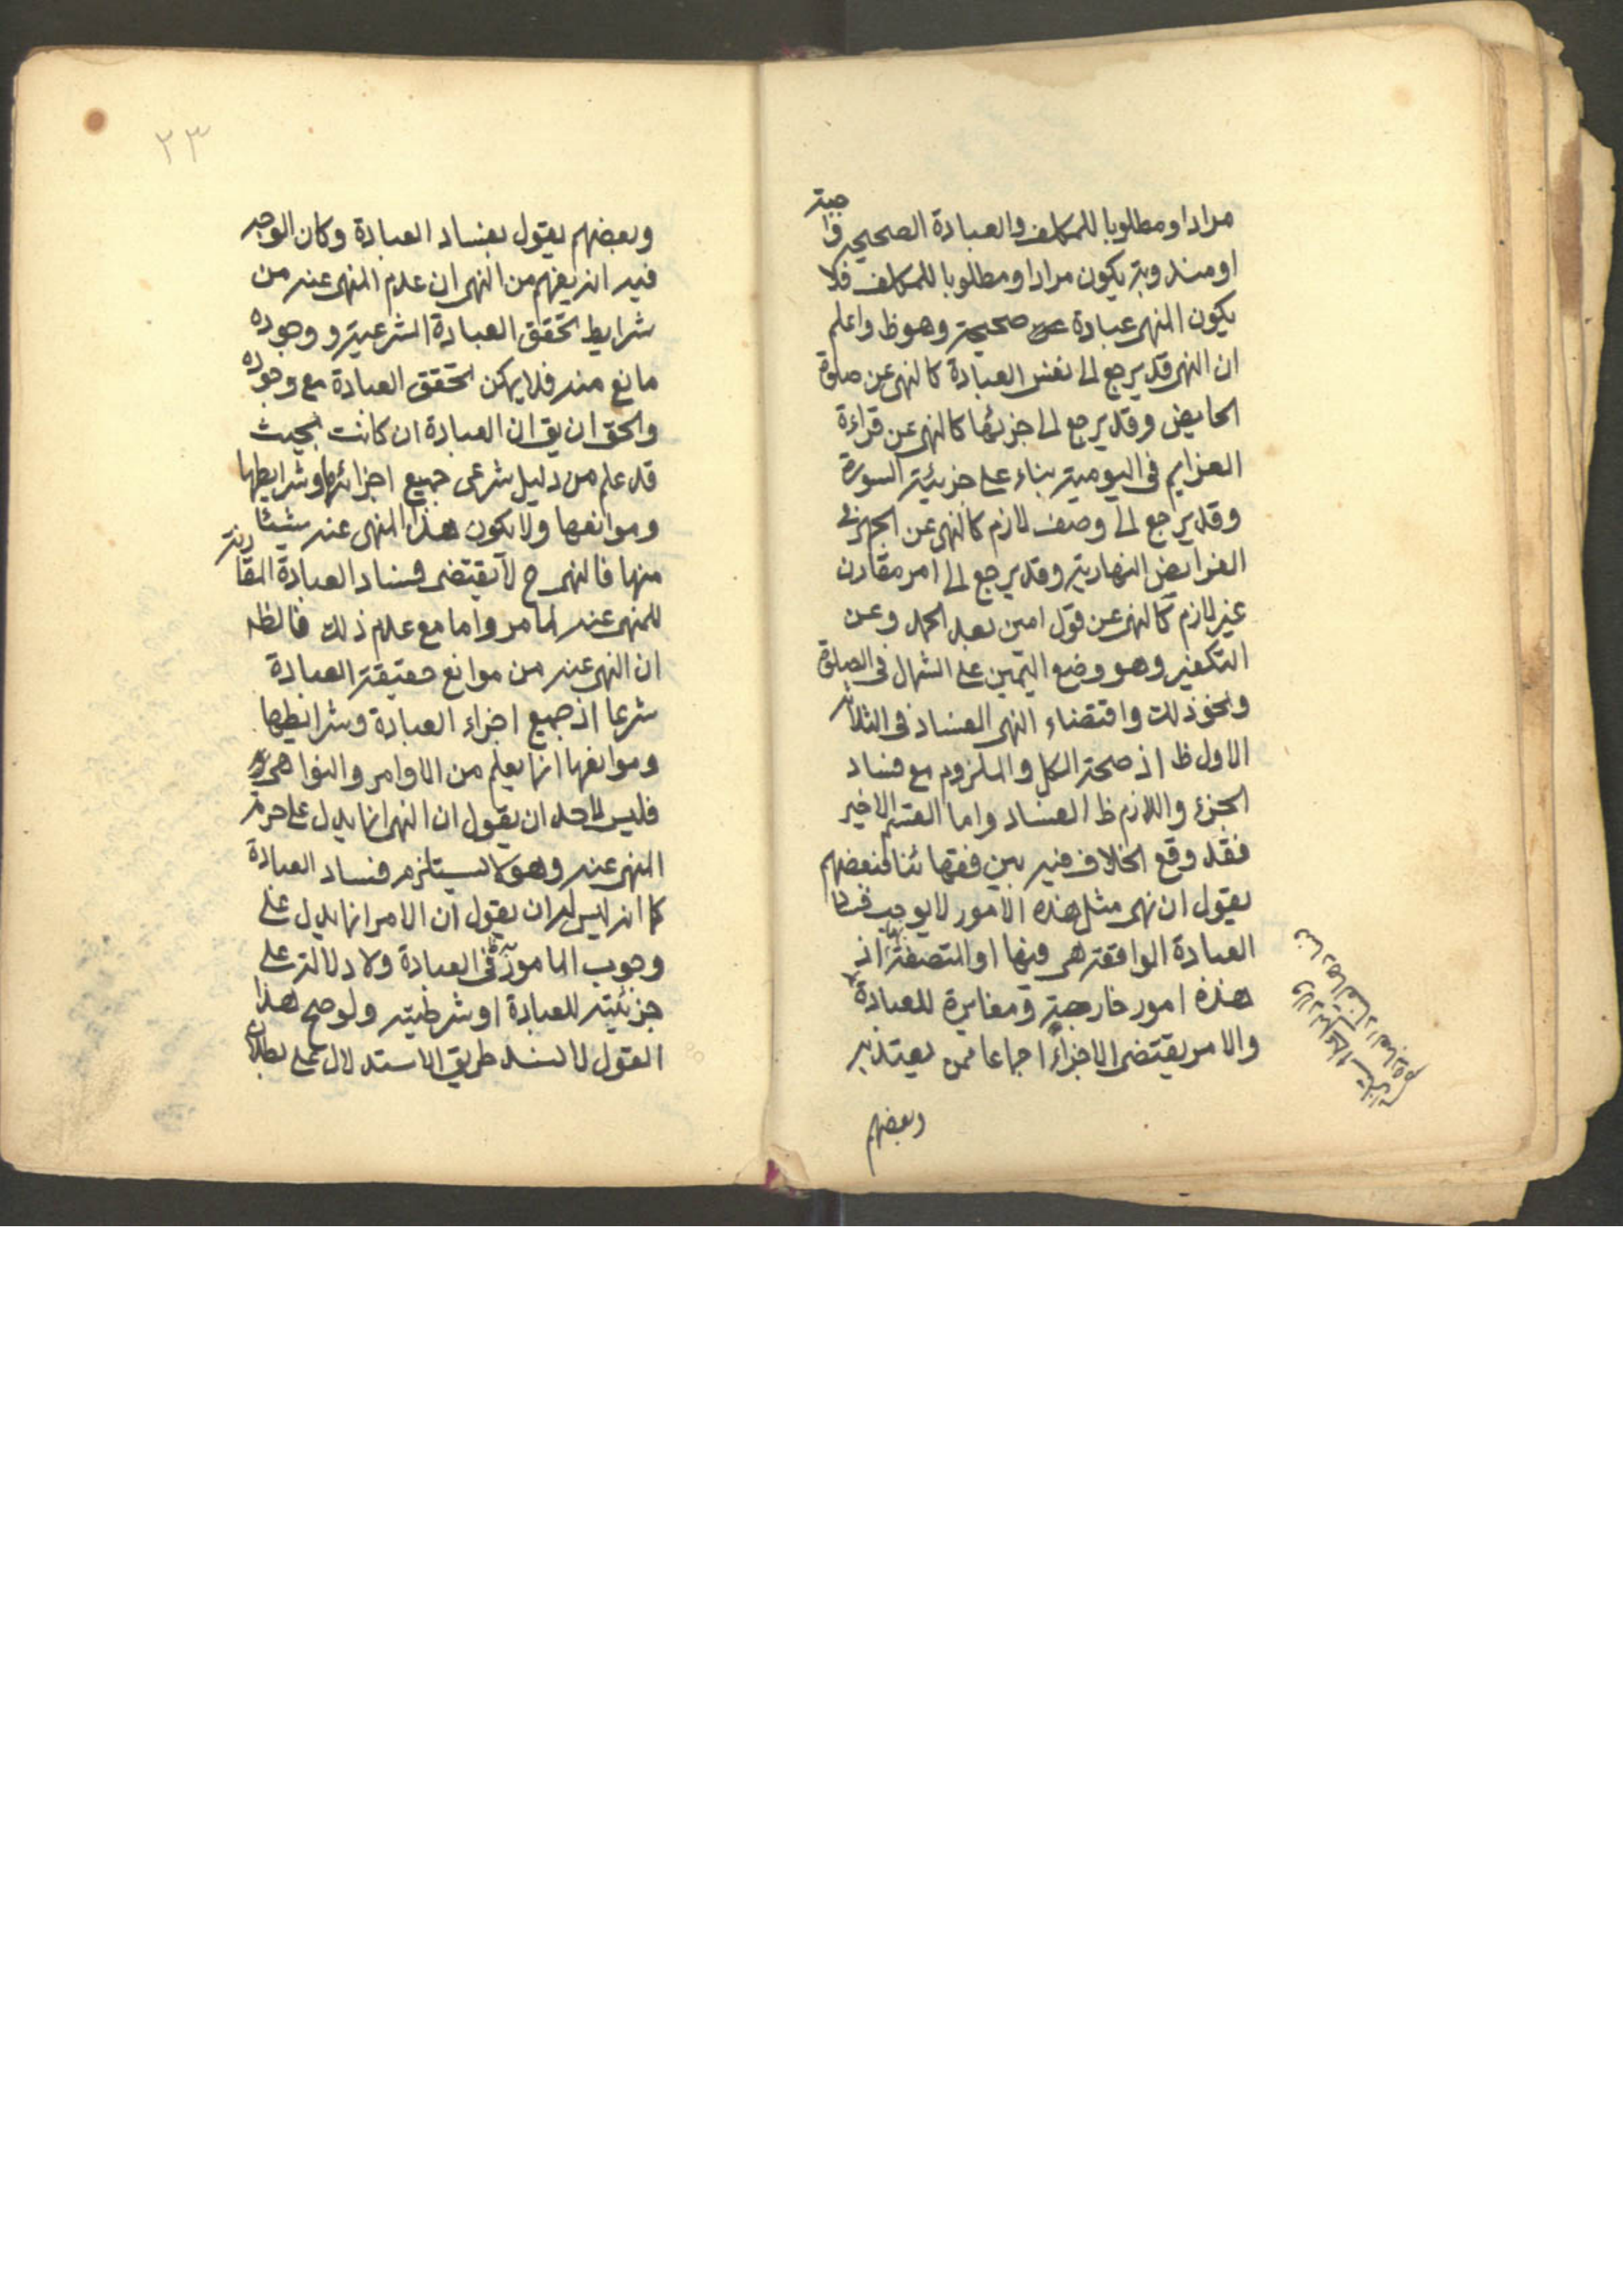 مرادا ومطلوبا للمكلف والعبادة الصحيحه واجبة
او مندوبة يكون مرادا ومطلوبا للمكلف فلا
يكون المنهى عبادة صحيحة وهو ظ واعلم
ان النهى قد يرجع الى نفس العبادة كالنهى عن صلوة
الحايض وقد يرجع الى جزئها كالنهى عن قراءة
العزايم فى اليومية بناء على جزئية السورة
وقد يرجع الى وصف لازم كالنهى عن الجهر فى
الفرايض النهارية وقد يرجع الى امر مقارن
غير لازم كالنهى عن قول امين بعد الحمد وعن
التكفير وهو وضع اليمين على الشمال فى الصلوة
ونحو ذلك واقتضاء النهى الفساد فى الثلاثة
الاول ظ اذ صحة الكل والملزوم مع فساد
الجزء واللازم ظ الفساد واما القسم الاخير
فقد وقع الخلاف فيه بين فقهائنا فبعضهم
يقول ان نهى مثل هذه الامور لا يوجب فساد
العبادة الواقعة هى فيها او المتصفة بها اذ
هذه امور خارجية ومغايرة للعبادة
والامر يقتضى الاجزاء اجماعا ممن يعتد به
وبعضهم
٢٣
وبعضهم يقول بفساد العبادة وكان الوجه
فيه انه يفهم من النهى ان عدم المنهى عنه من
شرايط تحقق العبادة الشرعية ووجوده
مانع منه فلا يمكن تحقق العبادة مع وجوده
والحق ان يق ان العبادة ان كانت بحيث
قد علم من دليل شرعى جميع اجزائها وشرايطها
وموانعها ولا يكون هذا المنهى عنه شيئا
منها فالنهى ح لا يقتضى فساد العبادة المقارنة
للمنهى عنه لما مر واما مع عدم ذلك فالظ
ان النهى عنه من موانع حقيقة العبادة
شرعا اذ جميع اجزاء العبادة وشرائطها
وموانعها انما يعلم من الاوامر والنواهى
فليس لاحد ان يقول ان النهى انما يدل على حرمة
المنهى عنه وهو لا يستلزم فساد العبادة
كما انه ليس له ان يقول ان الامر انما يدل على
وجوب المامور به فى العبادة ولا دلالة على
جزئيته للعبادة او شرطيته ولو صح هذا
القول لانسد طريق الاستدلال على بطلان